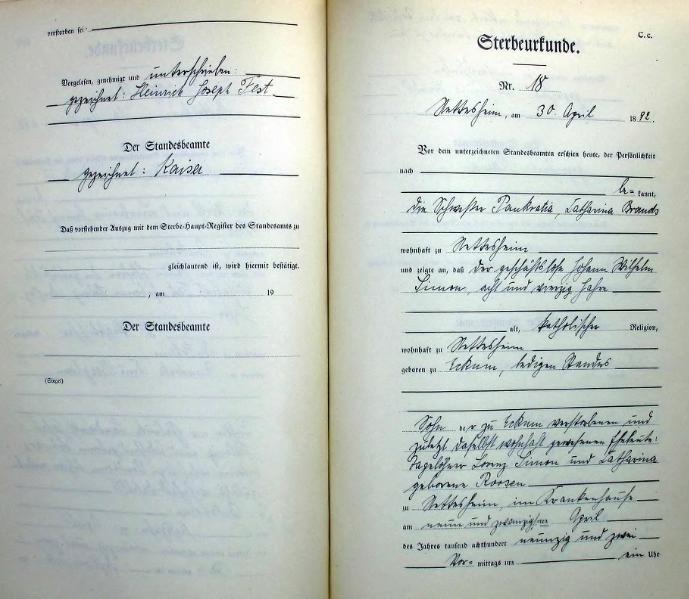 verstorben sei
Vorgelesen, genehmigt und unterschrieben:
gezeichnet: Heinrich Joseph Fest
Der Standesbeamte
gezeichnet: Kaiser
Daß vorstehender Auszug mit dem Sterbe-Haupt-Register des Standesamts zu
gleichlautend ist, wird hiermit bestätigt.
, am 19
Der Standesbeamte
(Siegel)
C. c.
Sterbeurkunde.
Nr. 18
Nettesheim, am 30 April 1892.
Vor dem unterzeichneten Standesbeamten erschien heute, der Persönlichkeit
nach
be= kannt,
die Schwester Pankratia, Catharina Brands
wohnhaft zu Nettesheim
und zeigte an, daß der geschäftslose Johann Wilhelm
Simon, acht und vierzig Jahre
alt, katholischer Religion,
wohnhaft zu Nettesheim
geboren zu Eckum, ledigen Standes
Sohn der zu Eckum verstorbenen und
zuletzt daselbst wohnhaft gewesenen Eheleute:
Tagelöhner Lorenz Simon und Catharina
geborene Roosen
zu Nettesheim, im Krankenhause
am neun und zwanzigsten April
des Jahres tausend achthundert neunzig und zwei
Vor= mittags um ein Uhr